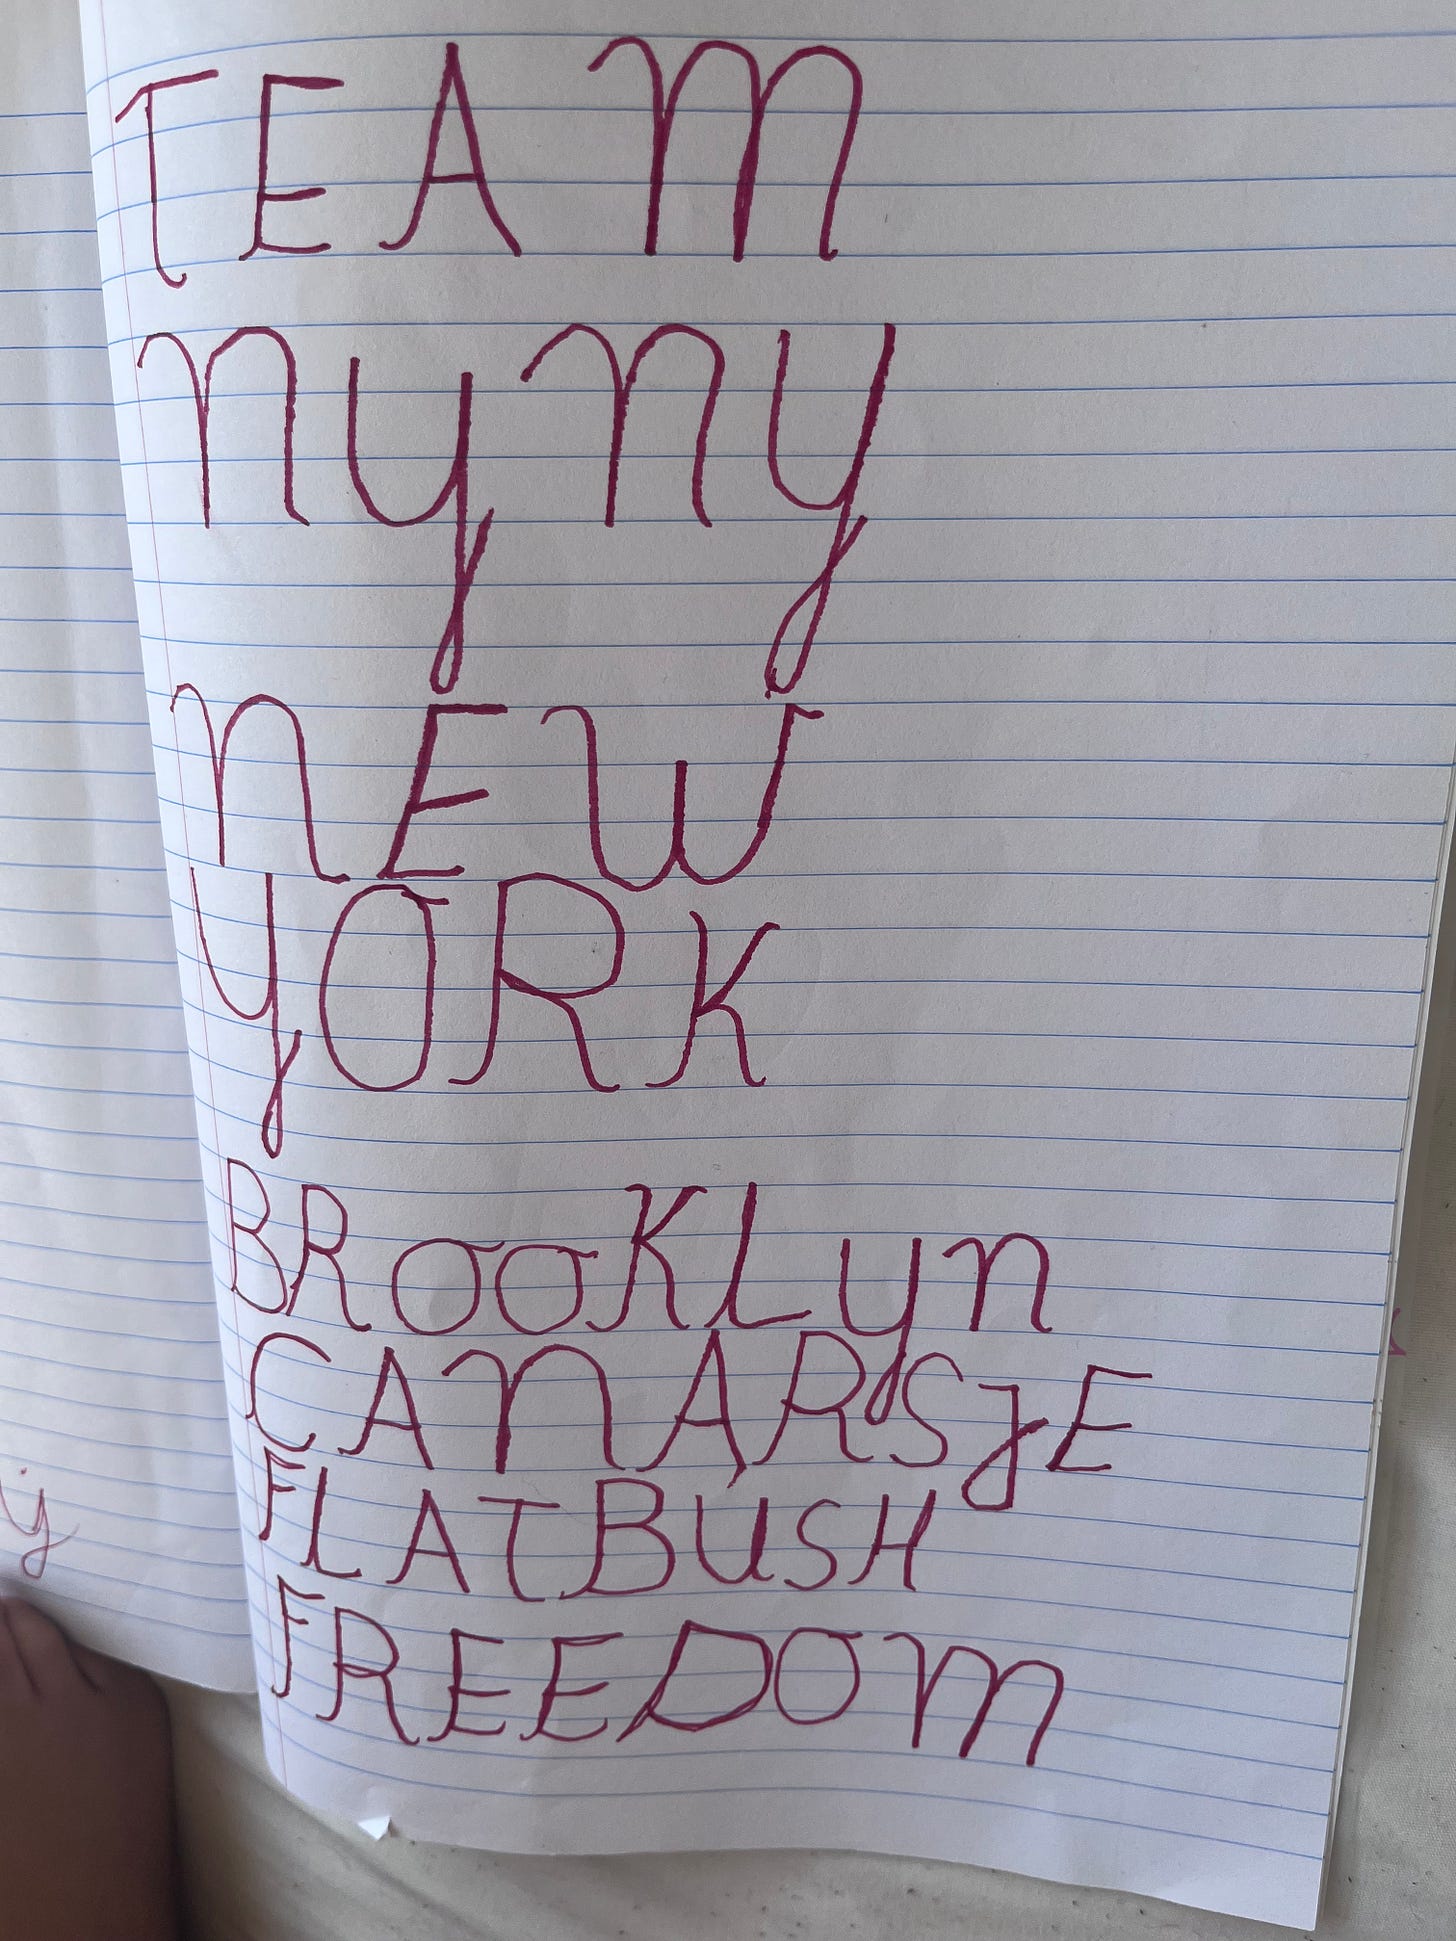 TEAM
nyny
NEW
YORK
BROOKLyn
CANARSJE
FLATBUSH
FREEDOM
y